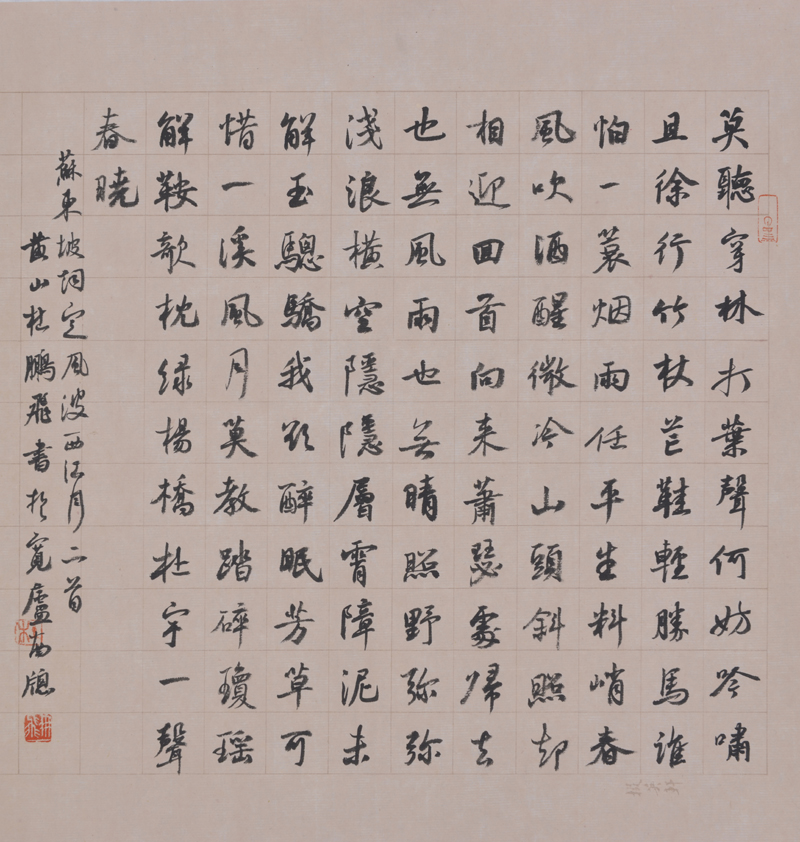 莫聽穿林打葉聲何妨吟嘯
且徐行竹杖芒鞋輕勝馬誰
怕一蓑烟雨任平生料峭春
風吹酒醒微冷山頭斜照却
相迎回首向来蕭瑟處歸去
也無風雨也無晴照野弥弥
淺浪橫空隱隱層霄障泥未
解玉驄驕我欲醉眠芳草可
惜一溪風月莫教踏碎瓊瑶
解鞍欹枕绿楊橋杜宇一聲
春曉
蘇東坡词定风波西江月二首
黄山杜鵬飛書於寬廬南牕